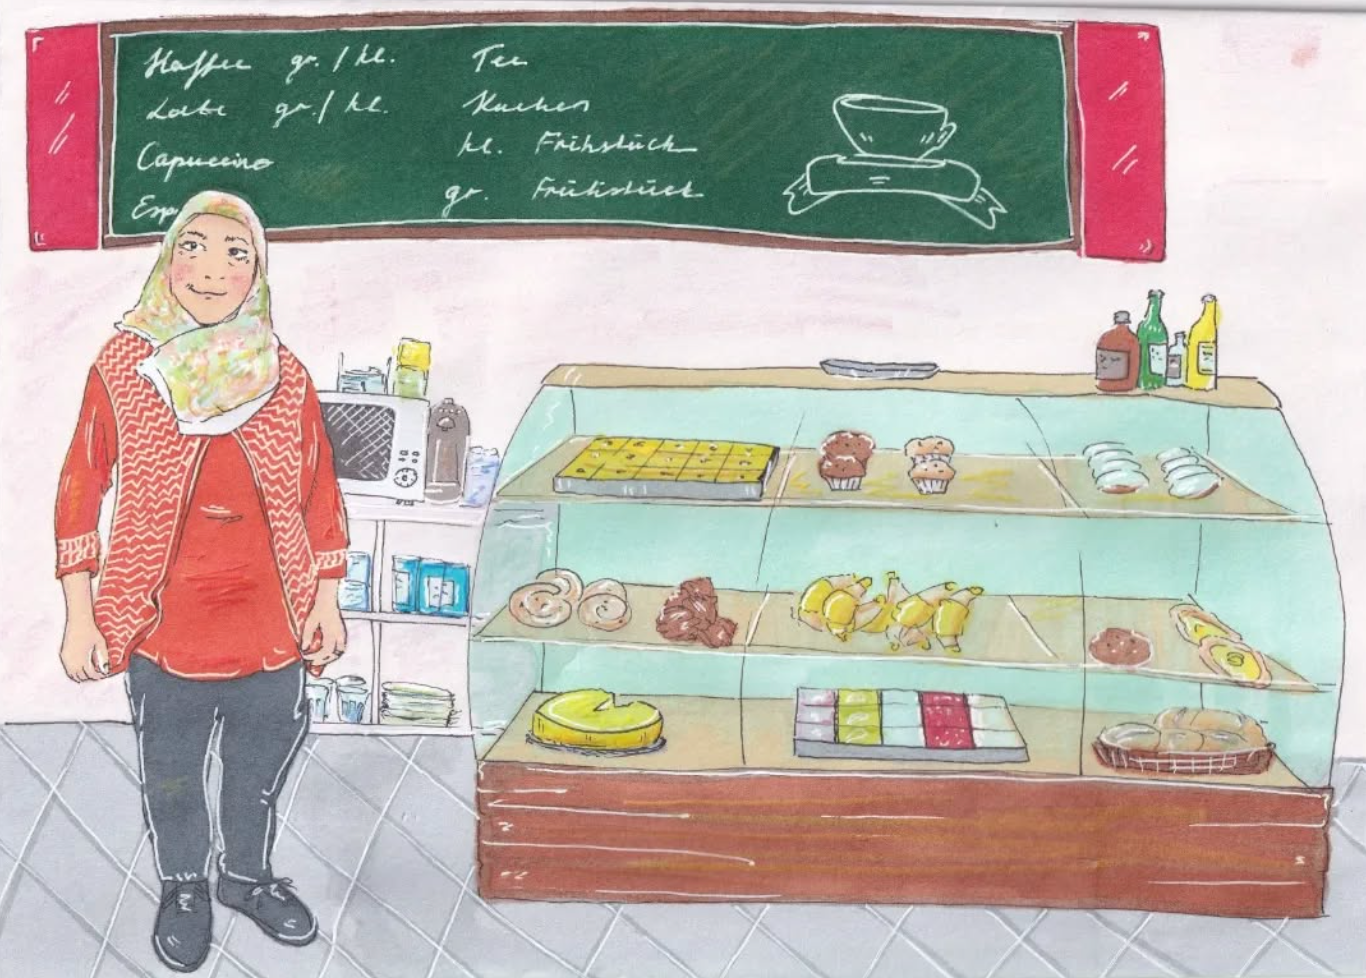 Kaffee gr. / kl.
Latte gr. / kl.
Capuccino
Esp
Tee
Kuchen
kl. Frühstück
gr. Frühstück